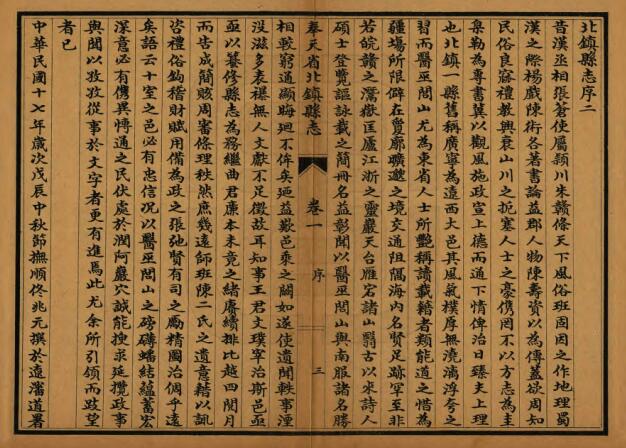 北鎮縣志序二
昔漢丞相張蒼使屬潁川朱贛條天下風俗班固因之作地理蜀
漢之際楊戲陳術各著書論益郡人物陳壽資以為傳蓋欲周知
民俗良窳禮教興衰山川之扼塞人士之豪儁罔不以方志為圭
臬勒為專書冀以觀風施政宣上德而通下情俾治日臻夫上理
也北鎮一縣舊稱廣寧為遼西大邑其風氣樸厚無澆漓浮夸之
習而醫巫閭山尤為東省人士所艷稱讀載籍者類能道之惜為
疆場所限僻在黃郛曠邈之境交通阻隔海內名賢足跡罕至非
若皖贛之灊嶽匡廬江浙之靈巖天台雁宕諸山翳古以來詩人
碩士登覽謳詠載之簡冊名益彰聞以醫巫閭山與南服諸名勝
相較窮通顯晦迥不侔矣廼益歎邑乘之闕如遂使遺聞軼事湮
沒滋多表襮無人文獻不足徵故耳知事王君文璞宰治斯邑亟
亟以纂修縣志為務繼曲君廉本未竟之緒賡續排比越四閱月
而告成簡賅周審條理秩然庶幾遠師班陳二氏之遺意藉以諏
咨禮俗鉤稽財賦用備為政之張弛賢有司之勵精圖治倜乎遠
矣語云十室之邑必有忠信況以醫巫閭山之磅礴蟠結蘊蓄宏
深意必有儁異愽通之民伏處於潤阿巖穴誠能搜求延攬政事
與聞以孜孜從事於文字者更有進焉此尤余所引領而跂望
者已
中華民國十七年歲次戊辰中秋節撫順佟兆元撰於遼瀋道署
奉天省北鎮縣志
卷一
序
三